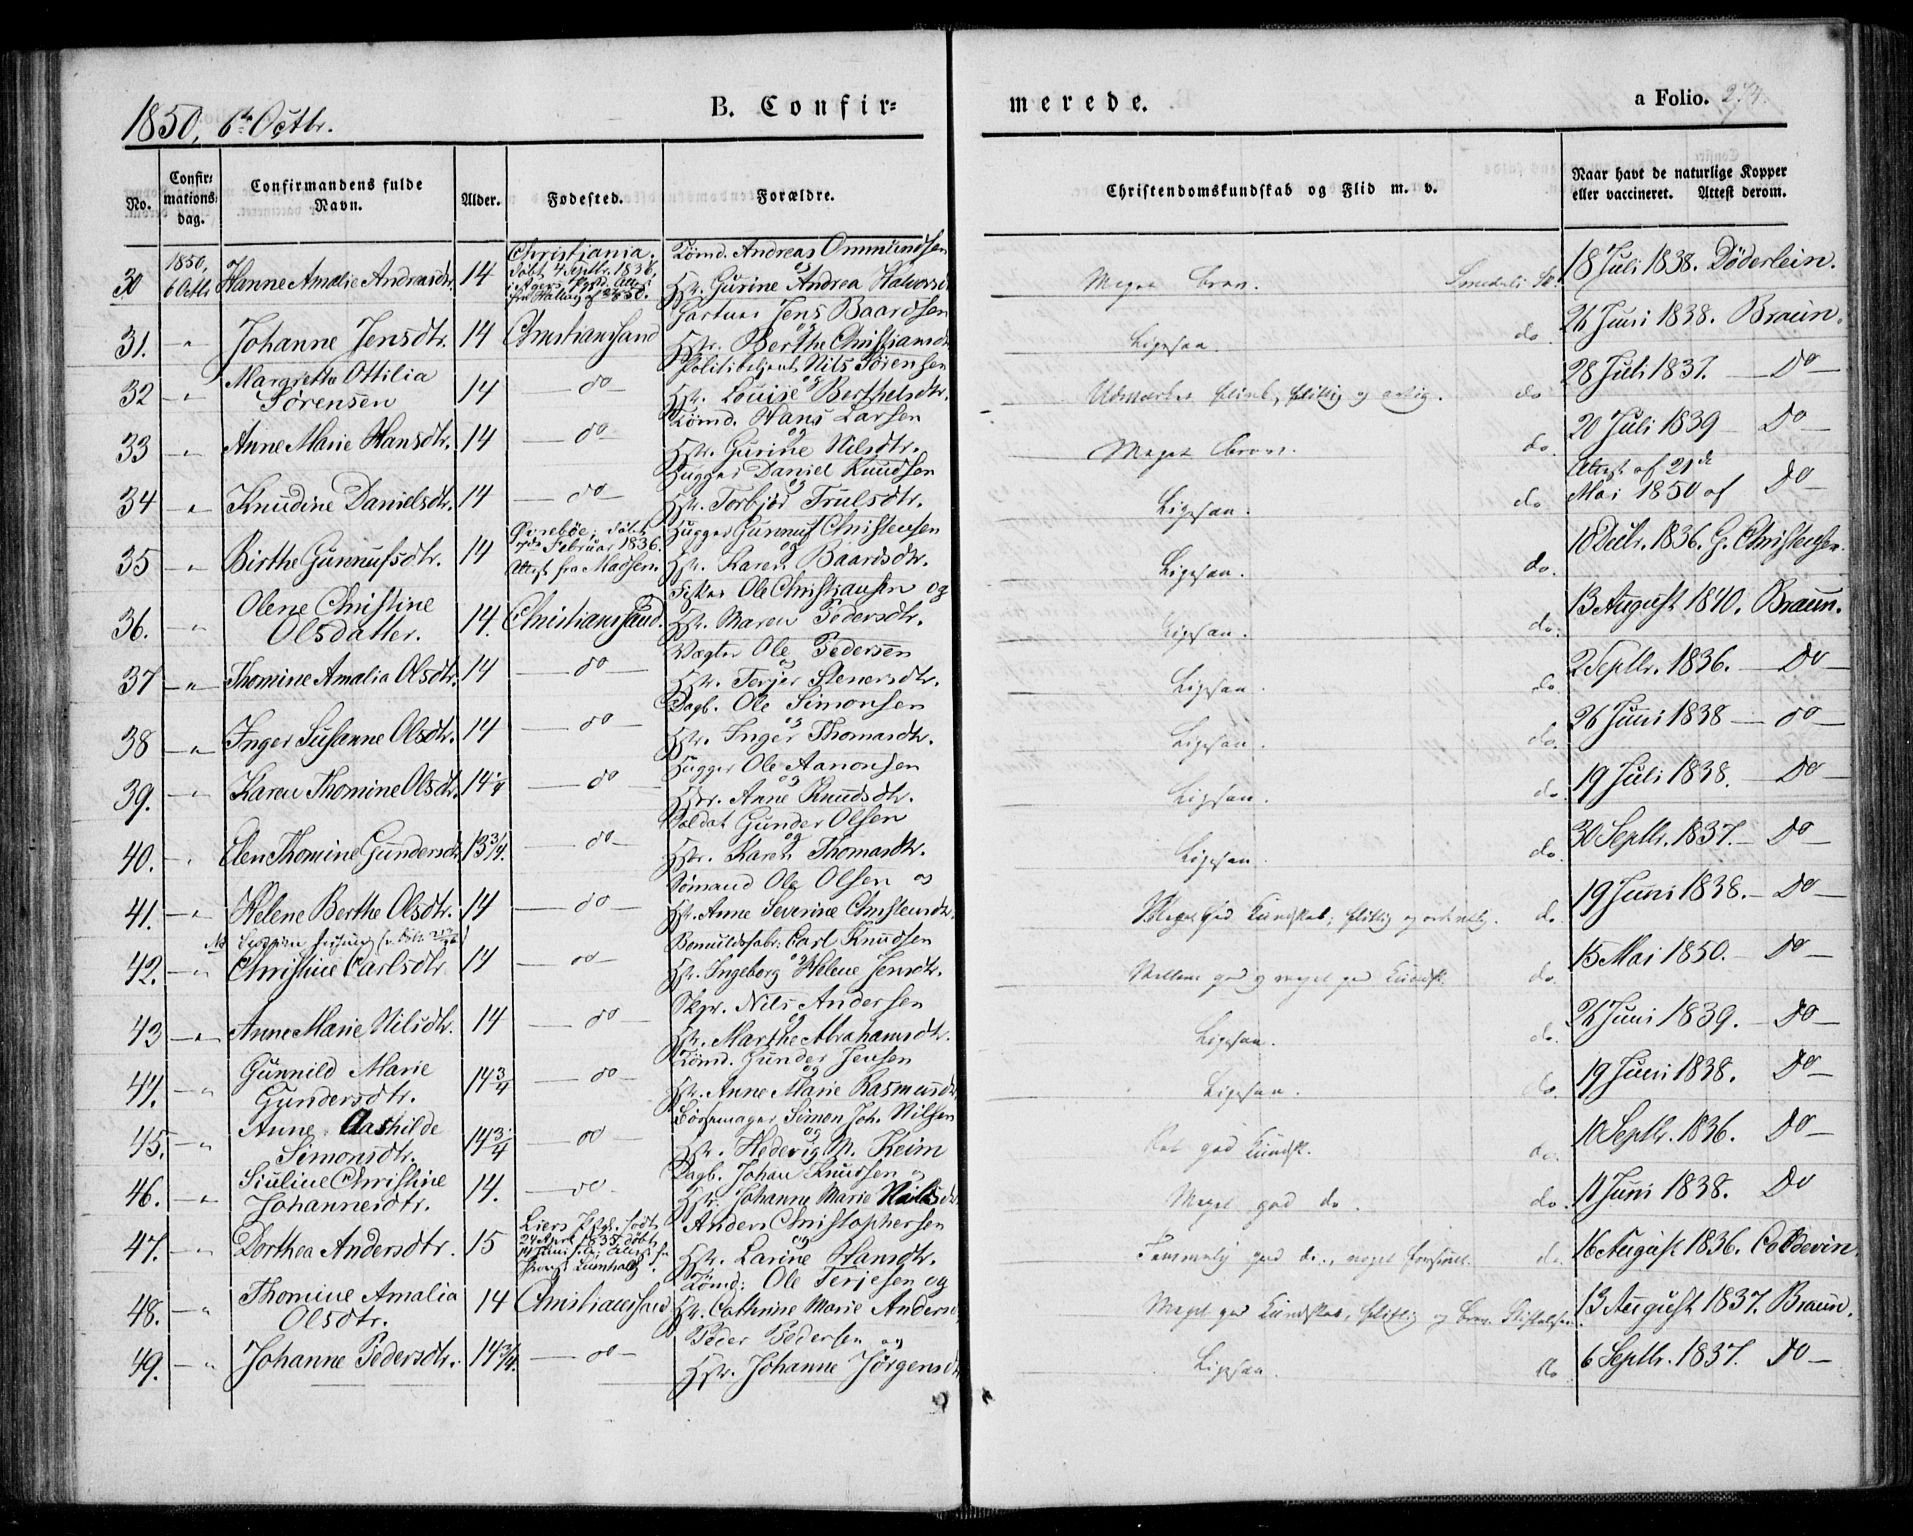 1850, 6te Octbr.
B. Confir= merede.
a Folio. 274.
No.
Confir= mations= dag.
Confirmandens fulde Navn.
Alder.
Fødested.
Forældre.
Christendomskundskab og Flid m. v.
Naar havt de naturlige Kopper eller vaccineret. Attest derom.
30 1850, 6 Octb. Hanne Amalie Andreasdtr. 14 Christiania. Tømd. Andreas Ommundsen og Hstr. Gurine Andrea Meget brav. 18 Juli 1838. Døderlein.
31. " Johanne Jensdtr. 14 Christianssand Jens Baardsen og Hstr. Berthe Christiansdtr. Ligesaa. do. 26 Juni 1838. Braun.
32 " Margrethe Ottilia Sørensen 14 do Politibetjent Nils Sørensen og Hstr. Louise Berthelsdtr. Udmærket flink, flittig og artig. do 28 Juli 1837. Do
33 " Anne Marie Hansdtr. 14 do Tømd. Hans Larsen og Hstr. Gurine Nilsdtr. Meget brav. do. 20 Juli 1839 Do
34 " Knudine Danielsdtr. 14 do Hugger Daniel Knudsen og Hstr. Torbjør Trulsdtr. Ligesaa. do Attest af 21de Mai 1850 af Do
35 " Birthe Gunnufsdtr. 14 Øvrebøe, døbt Februar 1836. Attest fra Madsen. Hugger Gunnuf Christensen og Hstr. Karen Baardsdtr. Ligesaa. do. 1836. G. Christensen.
36. " Olene Christine Olsdatter. 14. Christianssand. Fisker Ole Christiansen og Hstr. Maren Pedersdtr. Ligesaa. do. 13 August 1840. Braun.
37 " Thomine Amalia Olsdtr. 14 do Vægter Ole Pedersen og Hstr. Terjer Stenersdtr. Ligesaa. do 2 Septbr. 1836. Do
38 " Inger Susanne Olsdtr. 14 do Dagb. Ole Simonsen og Hstr. Inger Thomasdtr. Ligesaa. do. 26 Juni 1838 do
39. " Karen Thomine Olsdtr. 14 1/4 do Hugger Ole Aanonsen og Hstr. Anne Knudsdtr. Ligesaa. do. 19 Juli 1838. Do
40. " Elen Thomine Gundersdtr. 13 3/4. do Soldat Gunder Olsen og Hstr. Karen Thomasdtr. Ligesaa. do. 30 Septbr. 1837. Do
41. " Helene Berthe Olsdtr. 14 do Sømand Ole Olsen og Hstr. Anne Severine Christensdtr. Meget god Kundskab, flittig og ordentlig. do. 19 Juni 1838. Do
42. " Christine Carlsdtr. 14 do Bomuldsfabr. Carl Knudsen og Hstr. Ingeborg Helene Jensdtr. Mellem god og meget god Kundsk. do. 15 Mai 1850. Do
43 " Anne Marie Nilsdtr. 14 do Skpr. Nils Andersen og Hstr. Marthe Abrahamsdtr. Ligesaa. do. 26 Juni 1839. Do
44. " Gunnild Marie Gundersdtr. 14 3/4 do Tømd. Gunder Jensen og Hstr. Anne Marie Rasmusdtr. Ligesaa. do. 19 Juni 1838. Do
45. " Anne Aashilde Simonsdtr. 14 3/4 do Simon Joh. Nilsen og Hstr. Hedevig M. Keim Ret god Kundsk. do. 10 Septbr. 1836. Do
46. " Siuline Christine Johannesdtr. 14. do Dagb. Johan Knudsen og Hstr. Johanne Marie Nilsdtr. Meget god do. do. 11 Juni 1838. Do
47. " Dorthea Andersdtr. 15 Liers Pgld. født 24 April 1835, døbt Anders Christophersen og Hstr. Larine Hansdtr. Temmelig god do., noget do. 16 August 1836. Coldevin.
48. " Thomine Amalia Olsdtr. 14 Christianssand Tømd. Ole Terjesen og Hstr. Cathrine Marie Andersdtr. Meget god Kundskab, flittig og brav. 13 August 1837. Braun.
49. " Johanne Pedersdtr. 14 3/4. do Peder Pedersen og Hstr. Johanne Jørgensdtr. Ligesaa. do 6 Septbr. 1837. Do